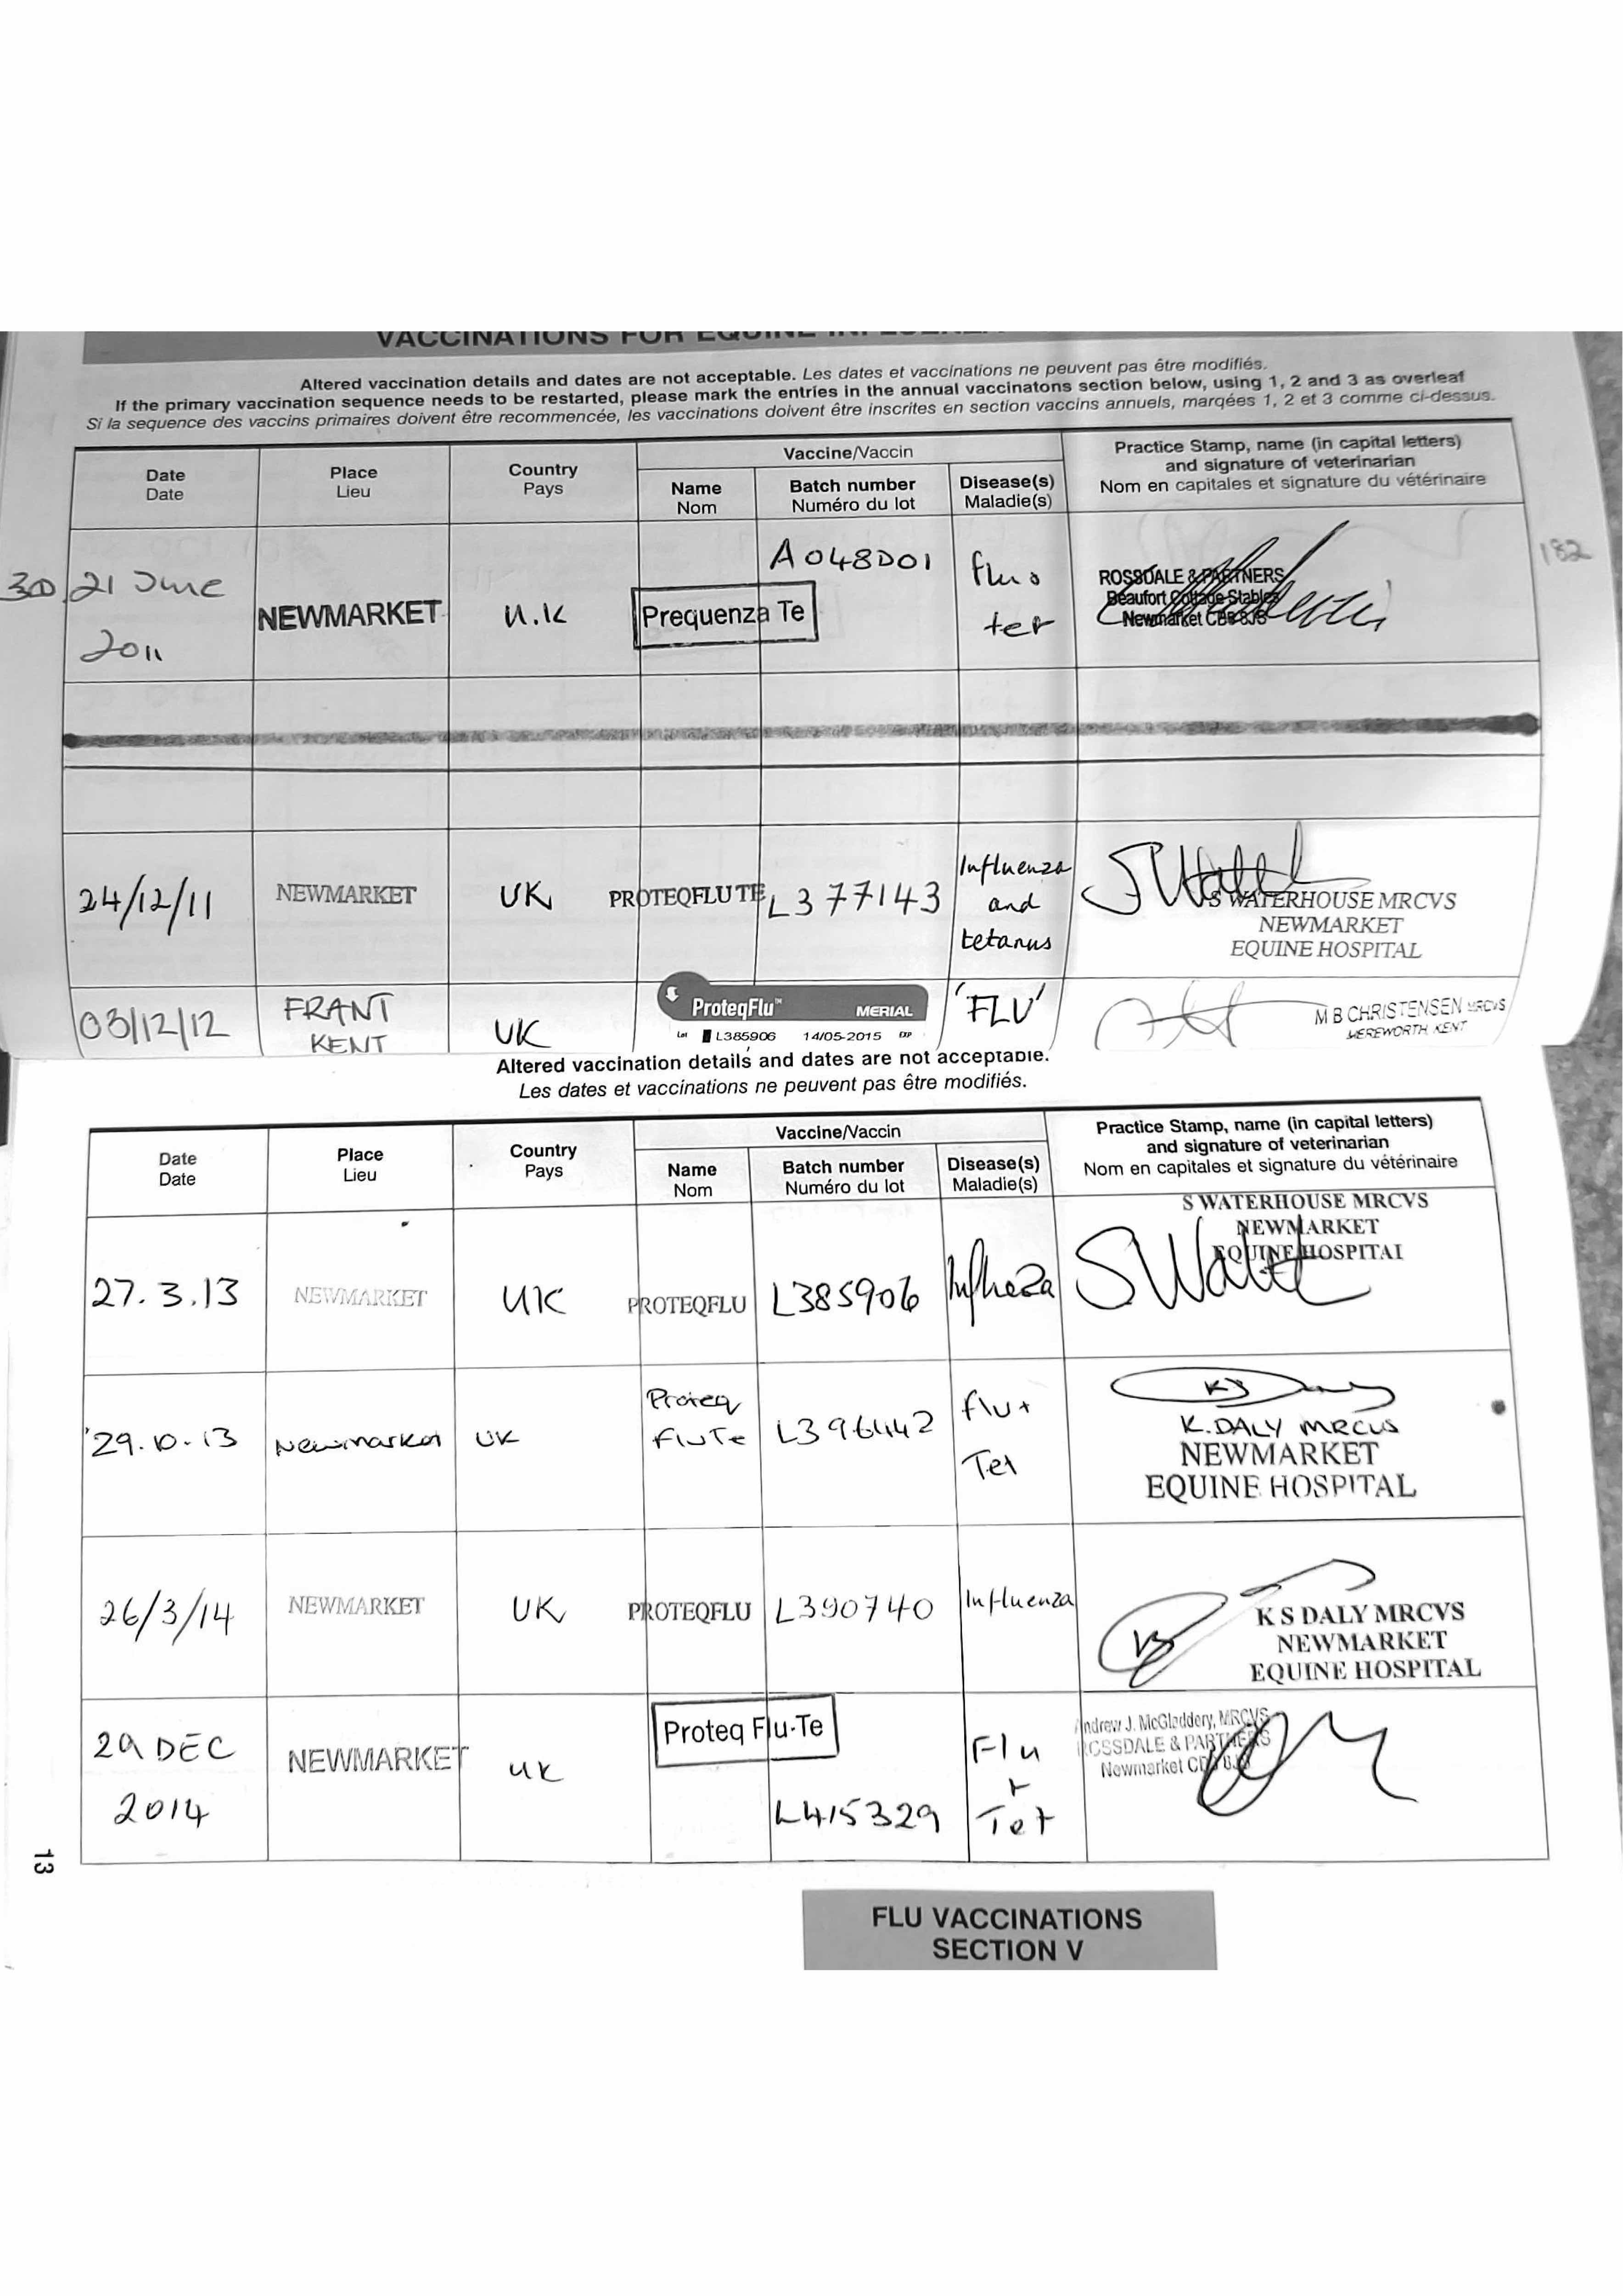 VACCINATIONS FOR EQUINE
Altered vaccination details and dates are not acceptable. Les dates et vaccinations ne peuvent pas être modifiés.
If the primary vaccination sequence needs to be restarted, please mark the entries in the annual vaccinatons section below, using 1, 2 and 3 as overleaf
Si la sequence des vaccins primaires doivent être recommencée, les vaccinations doivent être inscrites en section vaccins annuels, marqées 1, 2 et 3 comme ci-dessus.
Date
Date
Place
Lieu
Country
Pays
Vaccine/Vaccin
Name
Nom
Batch number
Numéro du lot
Disease(s)
Maladie(s)
Practice Stamp, name (in capital letters)
and signature of veterinarian
Nom en capitales et signature du vétérinaire
21 June
2011
NEWMARKET
U.K
Prequenza Te
A048D01
flu
tet
ROSSDALE & PARTNERS
Beaufort Cottage Stables
Newmarket CB8 8JS
182
24/12/11
NEWMARKET
UK
PROTEQFLU TE
L377143
Influenza
and
tetanus
S WATERHOUSE MRCVS
NEWMARKET
EQUINE HOSPITAL
03/12/12
FRANT
KENT
UK
ProteqFlu™ MERIAL
Lot L385906 14/05-2015 EXP
'FLU'
M B CHRISTENSEN MRCVS
MEREWORTH KENT
Altered vaccination details and dates are not acceptable.
Les dates et vaccinations ne peuvent pas être modifiés.
Date
Date
Place
Lieu
Country
Pays
Vaccine/Vaccin
Name
Nom
Batch number
Numéro du lot
Disease(s)
Maladie(s)
Practice Stamp, name (in capital letters)
and signature of veterinarian
Nom en capitales et signature du vétérinaire
27.3.13
NEWMARKET
UK
PROTEQFLU
L385906
S WATERHOUSE MRCVS
NEWMARKET
EQUINE HOSPITAL
29.10.13
Newmarket
UK
Proteq
FluTe
L396442
flu +
Tet
K. DALY MRCVS
NEWMARKET
EQUINE HOSPITAL
26/3/14
NEWMARKET
UK
PROTEQFLU
L390740
Influenza
K S DALY MRCVS
NEWMARKET
EQUINE HOSPITAL
29 DEC
2014
NEWMARKET
UK
Proteq Flu-Te
L415329
Flu
+
Tet
Andrew J. McGladdery, MRCVS
ROSSDALE & PARTNERS
Newmarket CB8 8JS
13
FLU VACCINATIONS
SECTION V